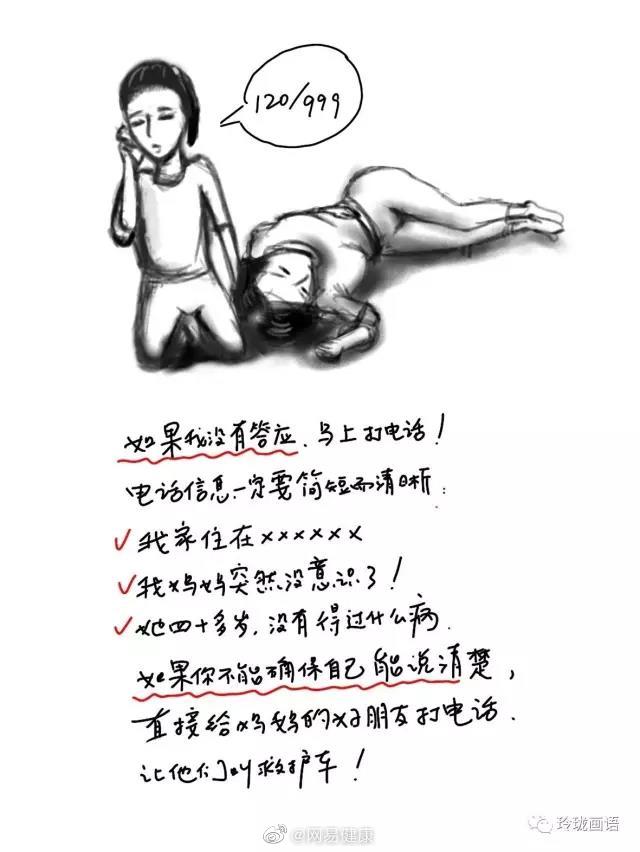 120/999
如果我没有答应、马上打电话！
电话信息一定要简短而清晰：
✓我家住在××××××
✓我妈妈突然没意识了！
✓她四十多岁，没有得过什么病.
如果你不能确保自己能说清楚，
直接给妈妈的好朋友打电话.
让他们叫救护车！
玲珑画语
@网易健康